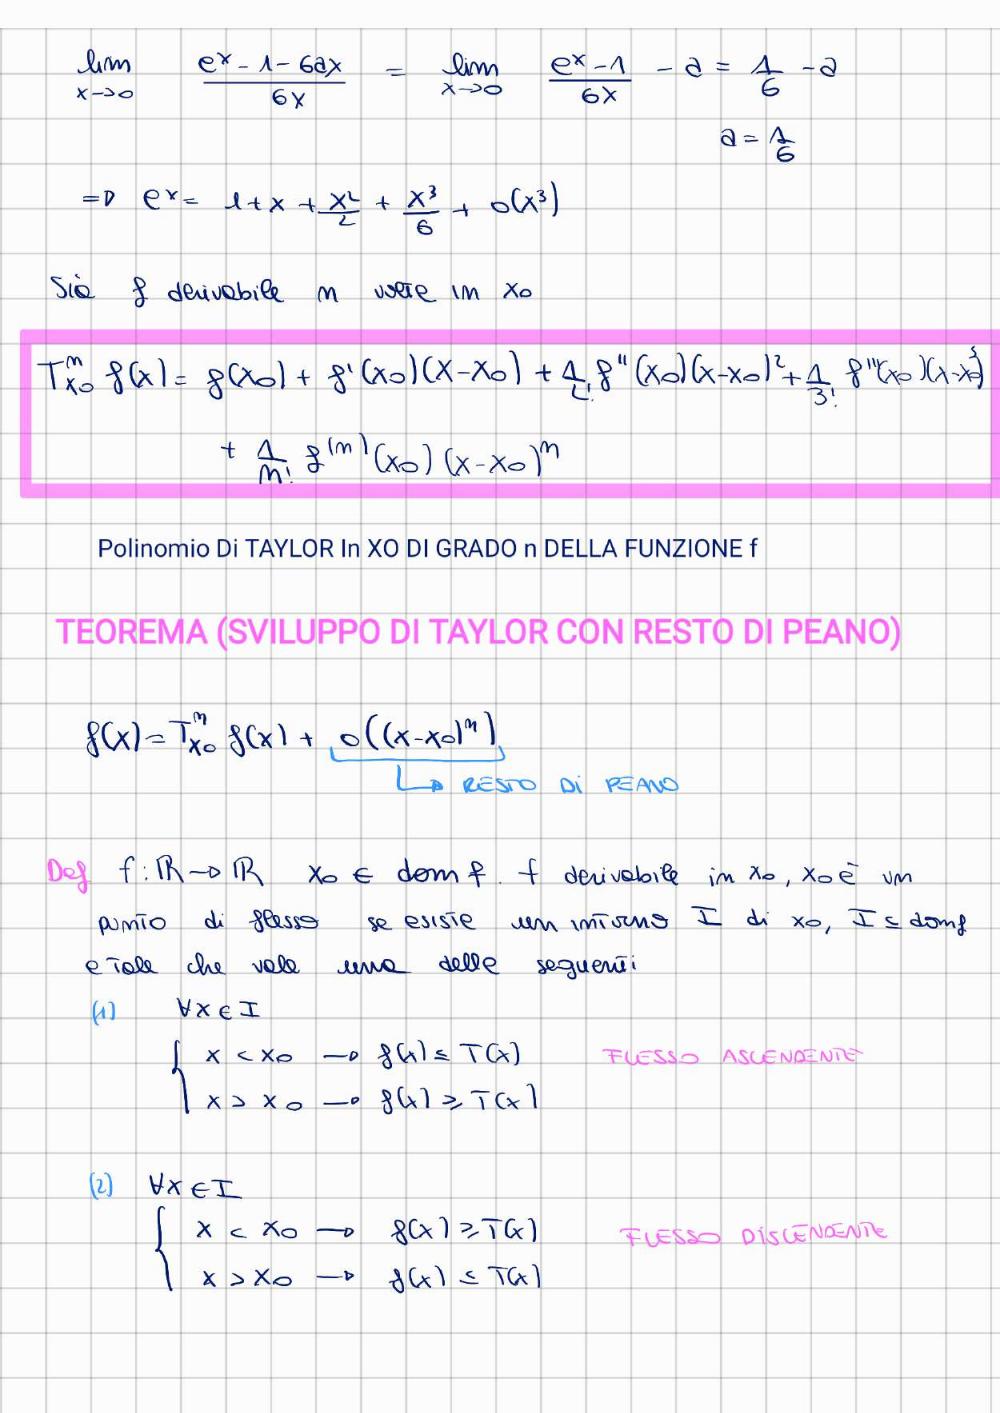 lim x→0 (e^x - 1 - 6ax)/(6x) = lim x→0 (e^x - 1)/(6x) - a = 1/6 - a
a = 1/6
⇒ e^x = 1 + x + x²/2 + x³/6 + o(x³)
Sia f derivabile n volte in x₀
T^n_{x₀} f(x) = f(x₀) + f'(x₀)(x-x₀) + 1/2! f''(x₀)(x-x₀)² + 1/3! f'''(x₀)(x-x₀)³
+ 1/n! f^(n)(x₀)(x-x₀)^n
Polinomio Di TAYLOR In XO DI GRADO n DELLA FUNZIONE f
TEOREMA (SVILUPPO DI TAYLOR CON RESTO DI PEANO)
f(x) = T^n_{x₀} f(x) + o((x-x₀)^n)
↳ RESTO Di PEANO
Def f: ℝ → ℝ x₀ ∈ dom f. f derivabile in x₀, x₀ è un
punto di flesso se esiste un intorno I di x₀, I ⊆ domf
e tale che vale una delle seguenti
(1) ∀x ∈ I
{ x < x₀ → f(x) ≤ T(x) FLESSO ASCENDENTE
x > x₀ → f(x) ≥ T(x)
(2) ∀x ∈ I
{ x < x₀ → f(x) ≥ T(x) FLESSO DISCENDENTE
x > x₀ → f(x) ≤ T(x)